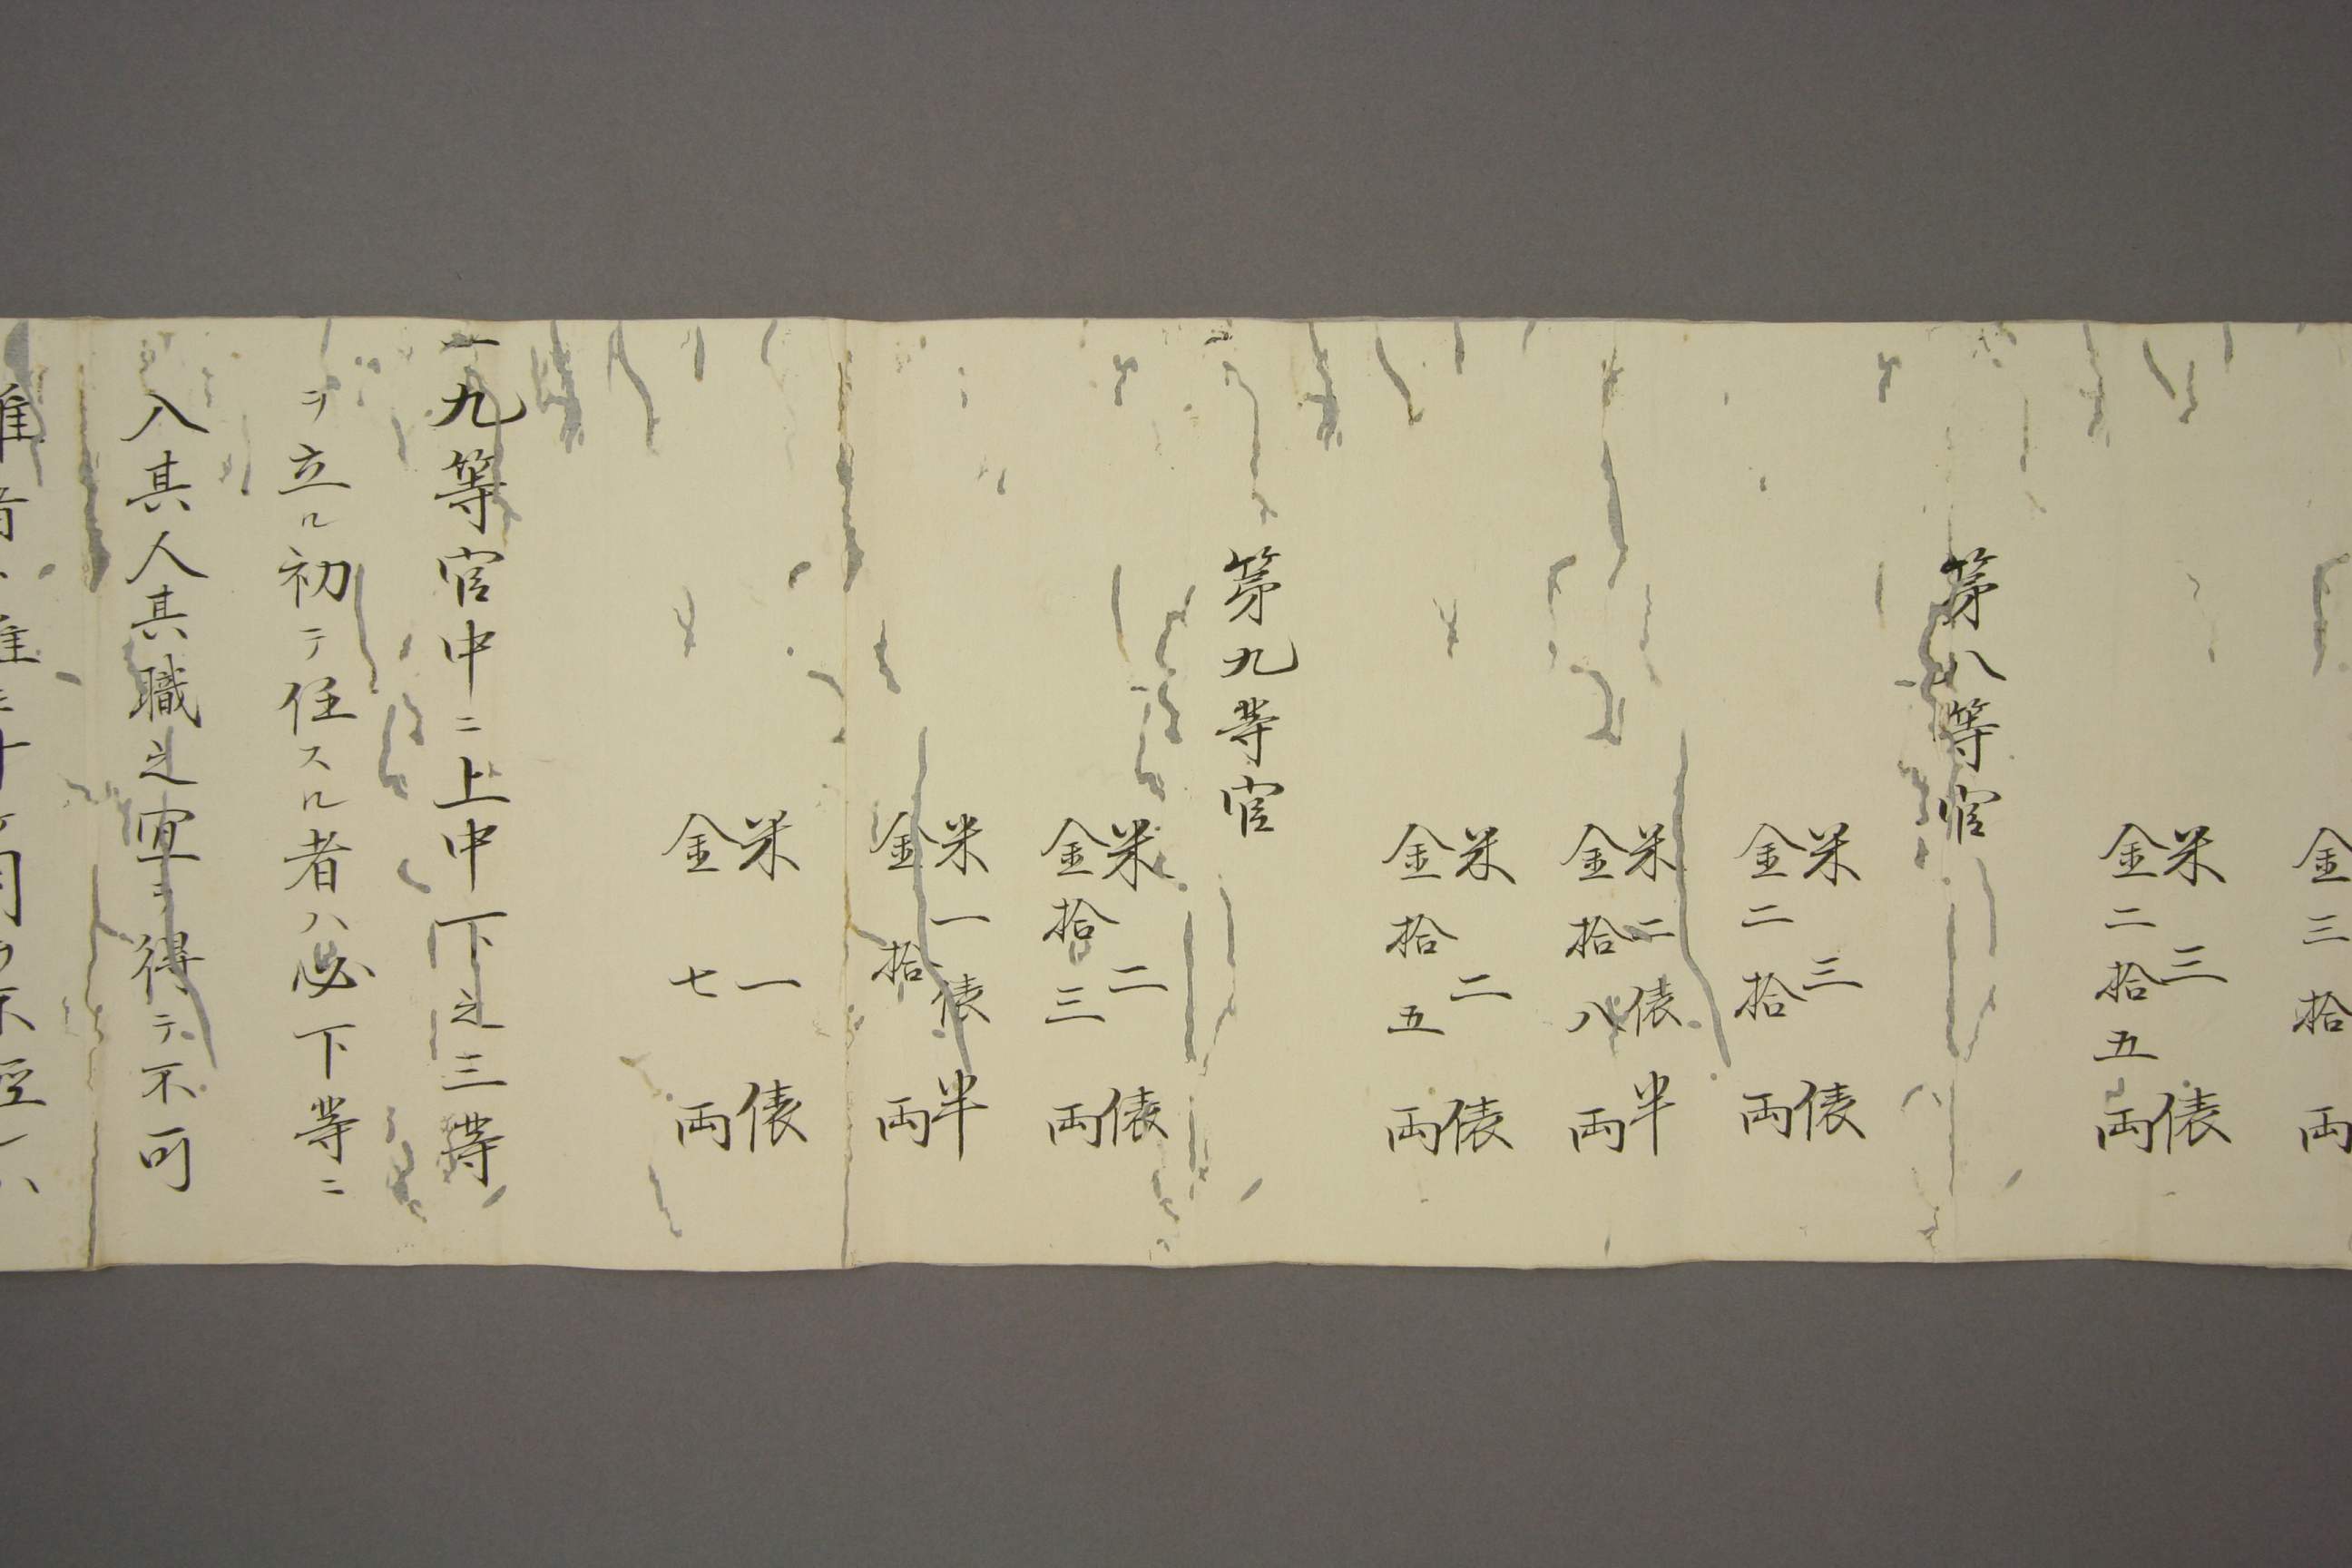 金三拾両
米三俵
金二拾五両
第八等官
米三俵
金二拾両
米二俵半
金拾八両
米二俵
金拾五両
第九等官
米二俵
金拾三両
米一俵半
金拾両
米一俵
金七両
一九等官中ニ上中下之三等
ヲ立ル初テ任スル者ハ必下等ニ
入其人其職之宜ヲ得テ不可